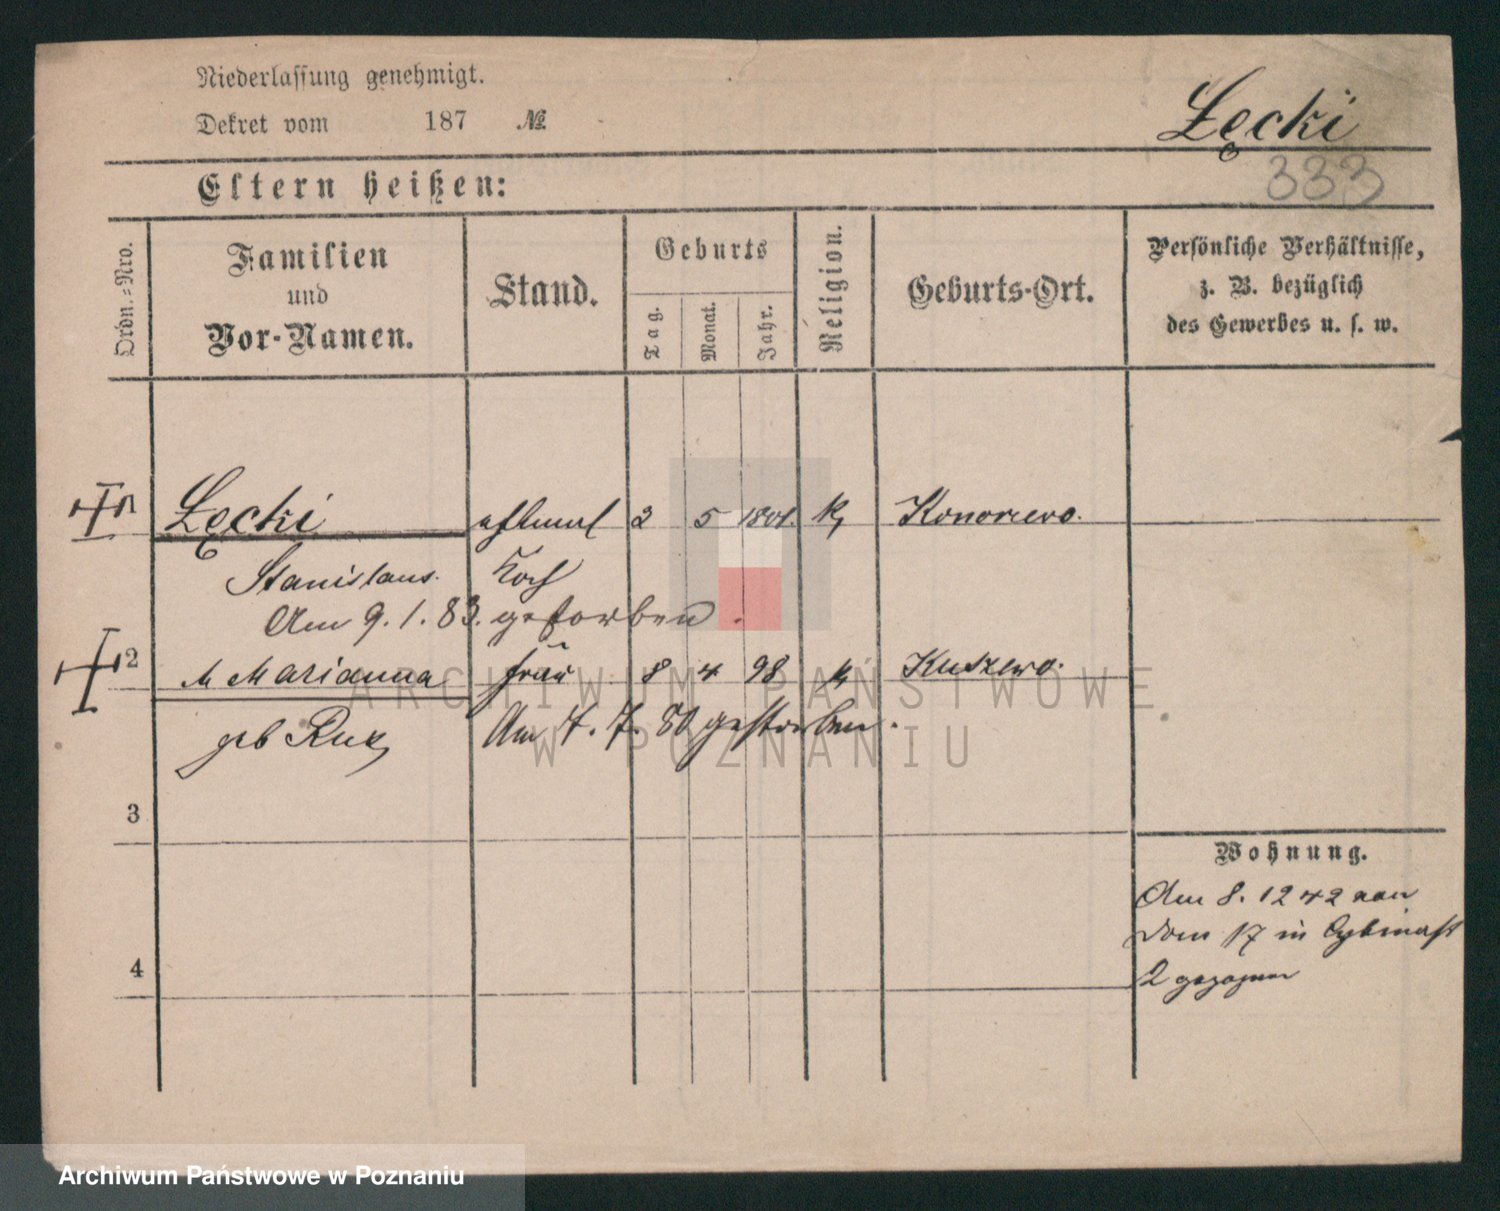 Niederlassung genehmigt.
Dekret vom 187 №
Łęcki
333
Eltern heißen:
Ordn.=Nro.
Familien
und
Vor-Namen.
Stand.
Geburts
Tag.
Monat.
Jahr.
Religion.
Geburts-Ort.
Persönliche Verhältnisse,
z. B. bezüglich
des Gewerbes u. s. w.
1 Łęcki 2 5 1801. k
Stanislaus. Koch
Am 9. 1. 83. gestorben.
2 Marianna frau 8 4 98 k
geb Am 7. 7. 80 gestorben.
3
4
Wohnung.
Am 8. 12 42 von
Dom 17 in
2 gezogen
ARCHIWUM PAŃSTWOWE
W POZNANIU
Archiwum Państwowe w Poznaniu